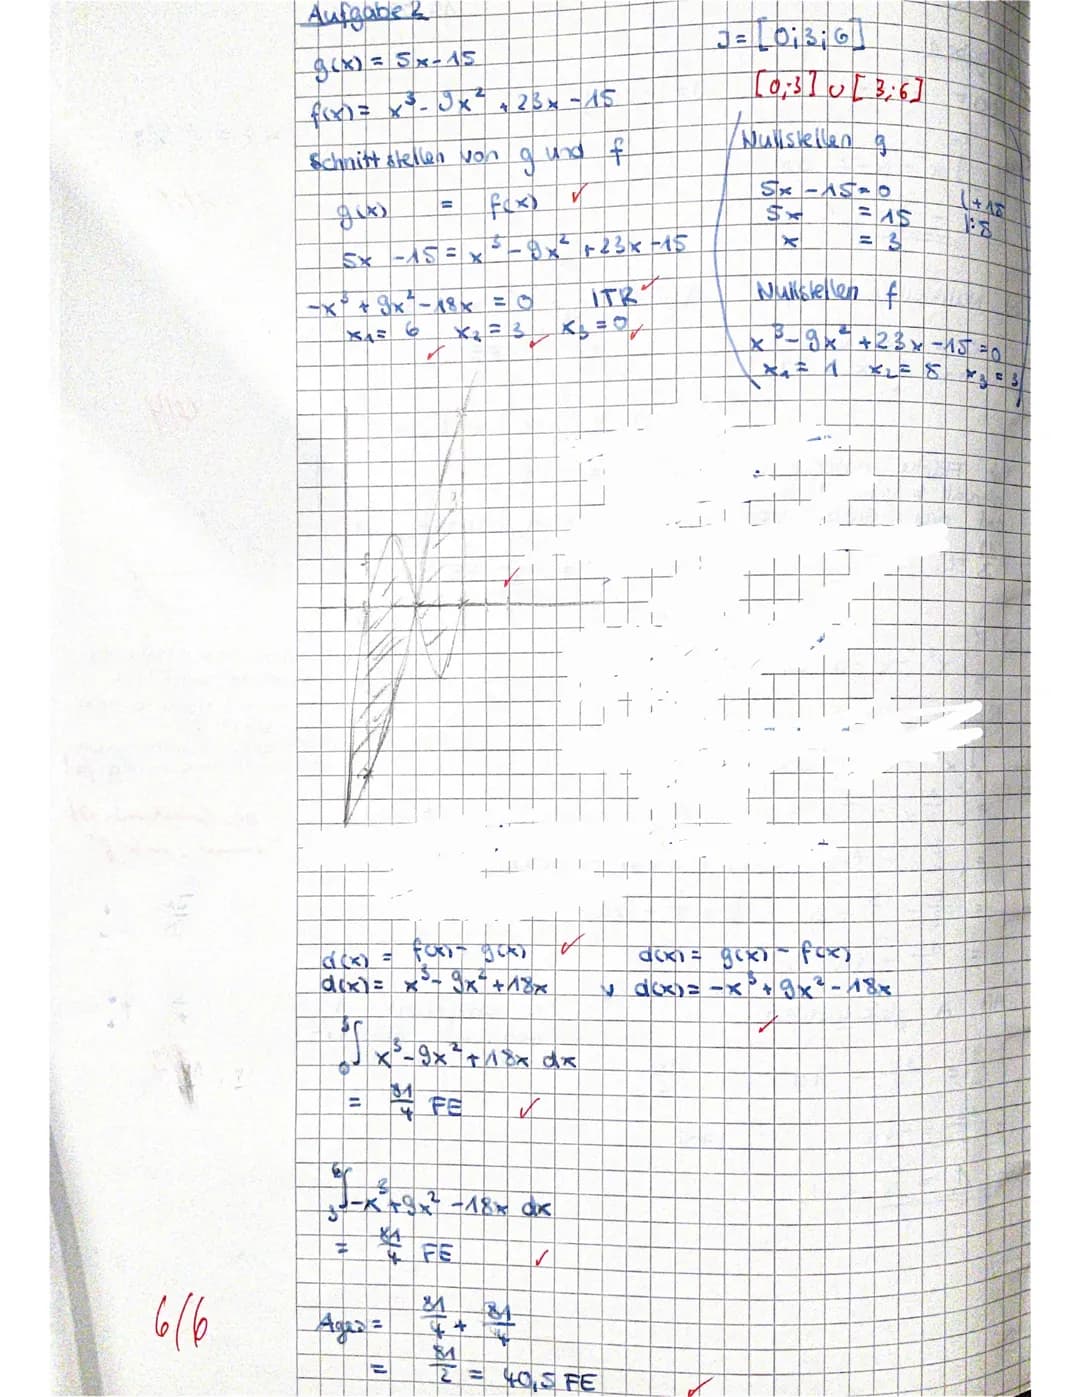 Aufgabe 2
g(x) = 5x-15
f(x) = x³- 9x² + 23x -15
Schnittstellen von g und f
g(x) = f(x) ✓
5x -15 = x³-9x² +23x -15
-x³ + 9x² -18x = 0 ITR ✓
x₁= 6 x₂ = 3 x₃ = 0
J= [0;3;6]
[0;3] ∪ [3;6]
Nullstellen g
5x -15=0 |+15
5x = 15 |:5
x = 3
Nullstellen f
x³-9x² +23x -15 =0
x₁ = 1 x₂= 5 x₃ = 3
d(x) = f(x)- g(x) ✓
d(x)= x³- 9x² +18x
d(x)= g(x) - f(x)
v d(x)= -x³+ 9x² - 18x ✓
3
∫ x³-9x² +18x dx
0
= 81/4 FE ✓
6
∫ -x³+9x² -18x dx
3
= 81/4 FE ✓
Ages = 81/4 + 81/4
= 81/2 = 40,5 FE ✓
6/6